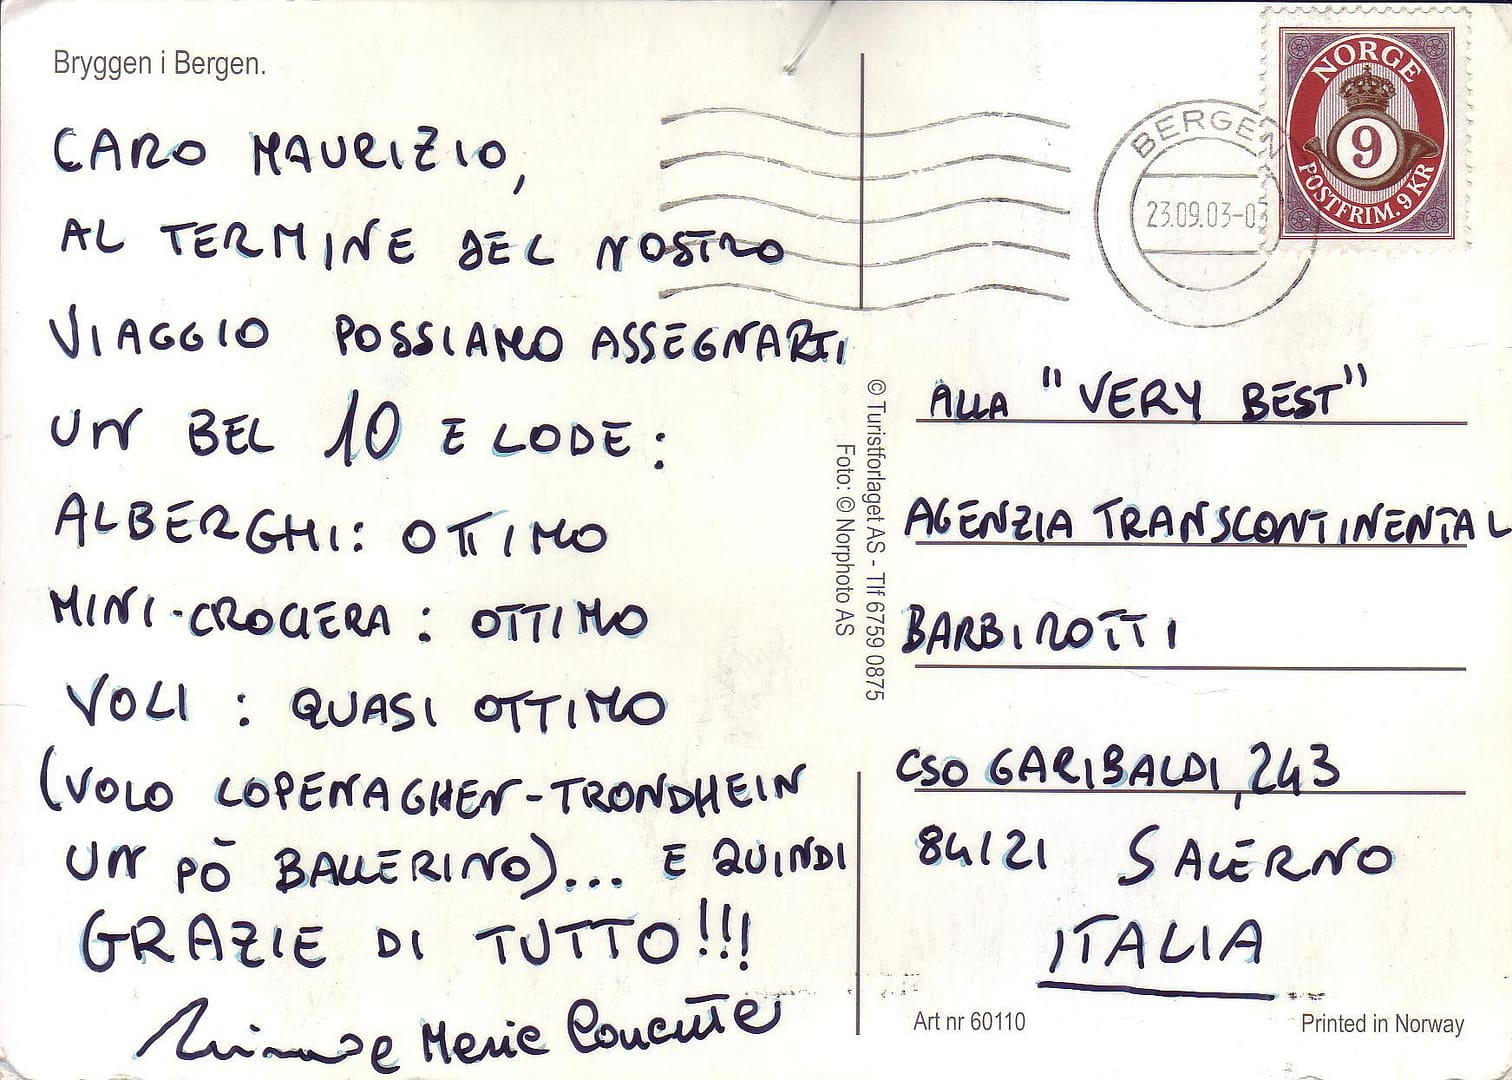 Bryggen i Bergen.
CARO MAURIZIO,
AL TERMINE DEL NOSTRO
VIAGGIO POSSIAMO ASSEGNARTI
UN BEL 10 E LODE:
ALBERGHI: OTTIMO
MINI-CROCIERA: OTTIMO
VOLI: QUASI OTTIMO
(VOLO COPENAGHEN-TRONDHEIN
UN PÒ BALLERINO)... E QUINDI
GRAZIE DI TUTTO!!!
e Maria
© Turistforlaget AS - Tlf 6759 0875
Foto: © Norphoto AS
BERGEN
23.09.03-03
NORGE
9
POSTFRIM. 9 KR
ALLA "VERY BEST"
AGENZIA TRANSCONTINENTAL
BARBIROTTI
CSO GARIBALDI, 243
84121 SALERNO
ITALIA
Art nr 60110
Printed in Norway